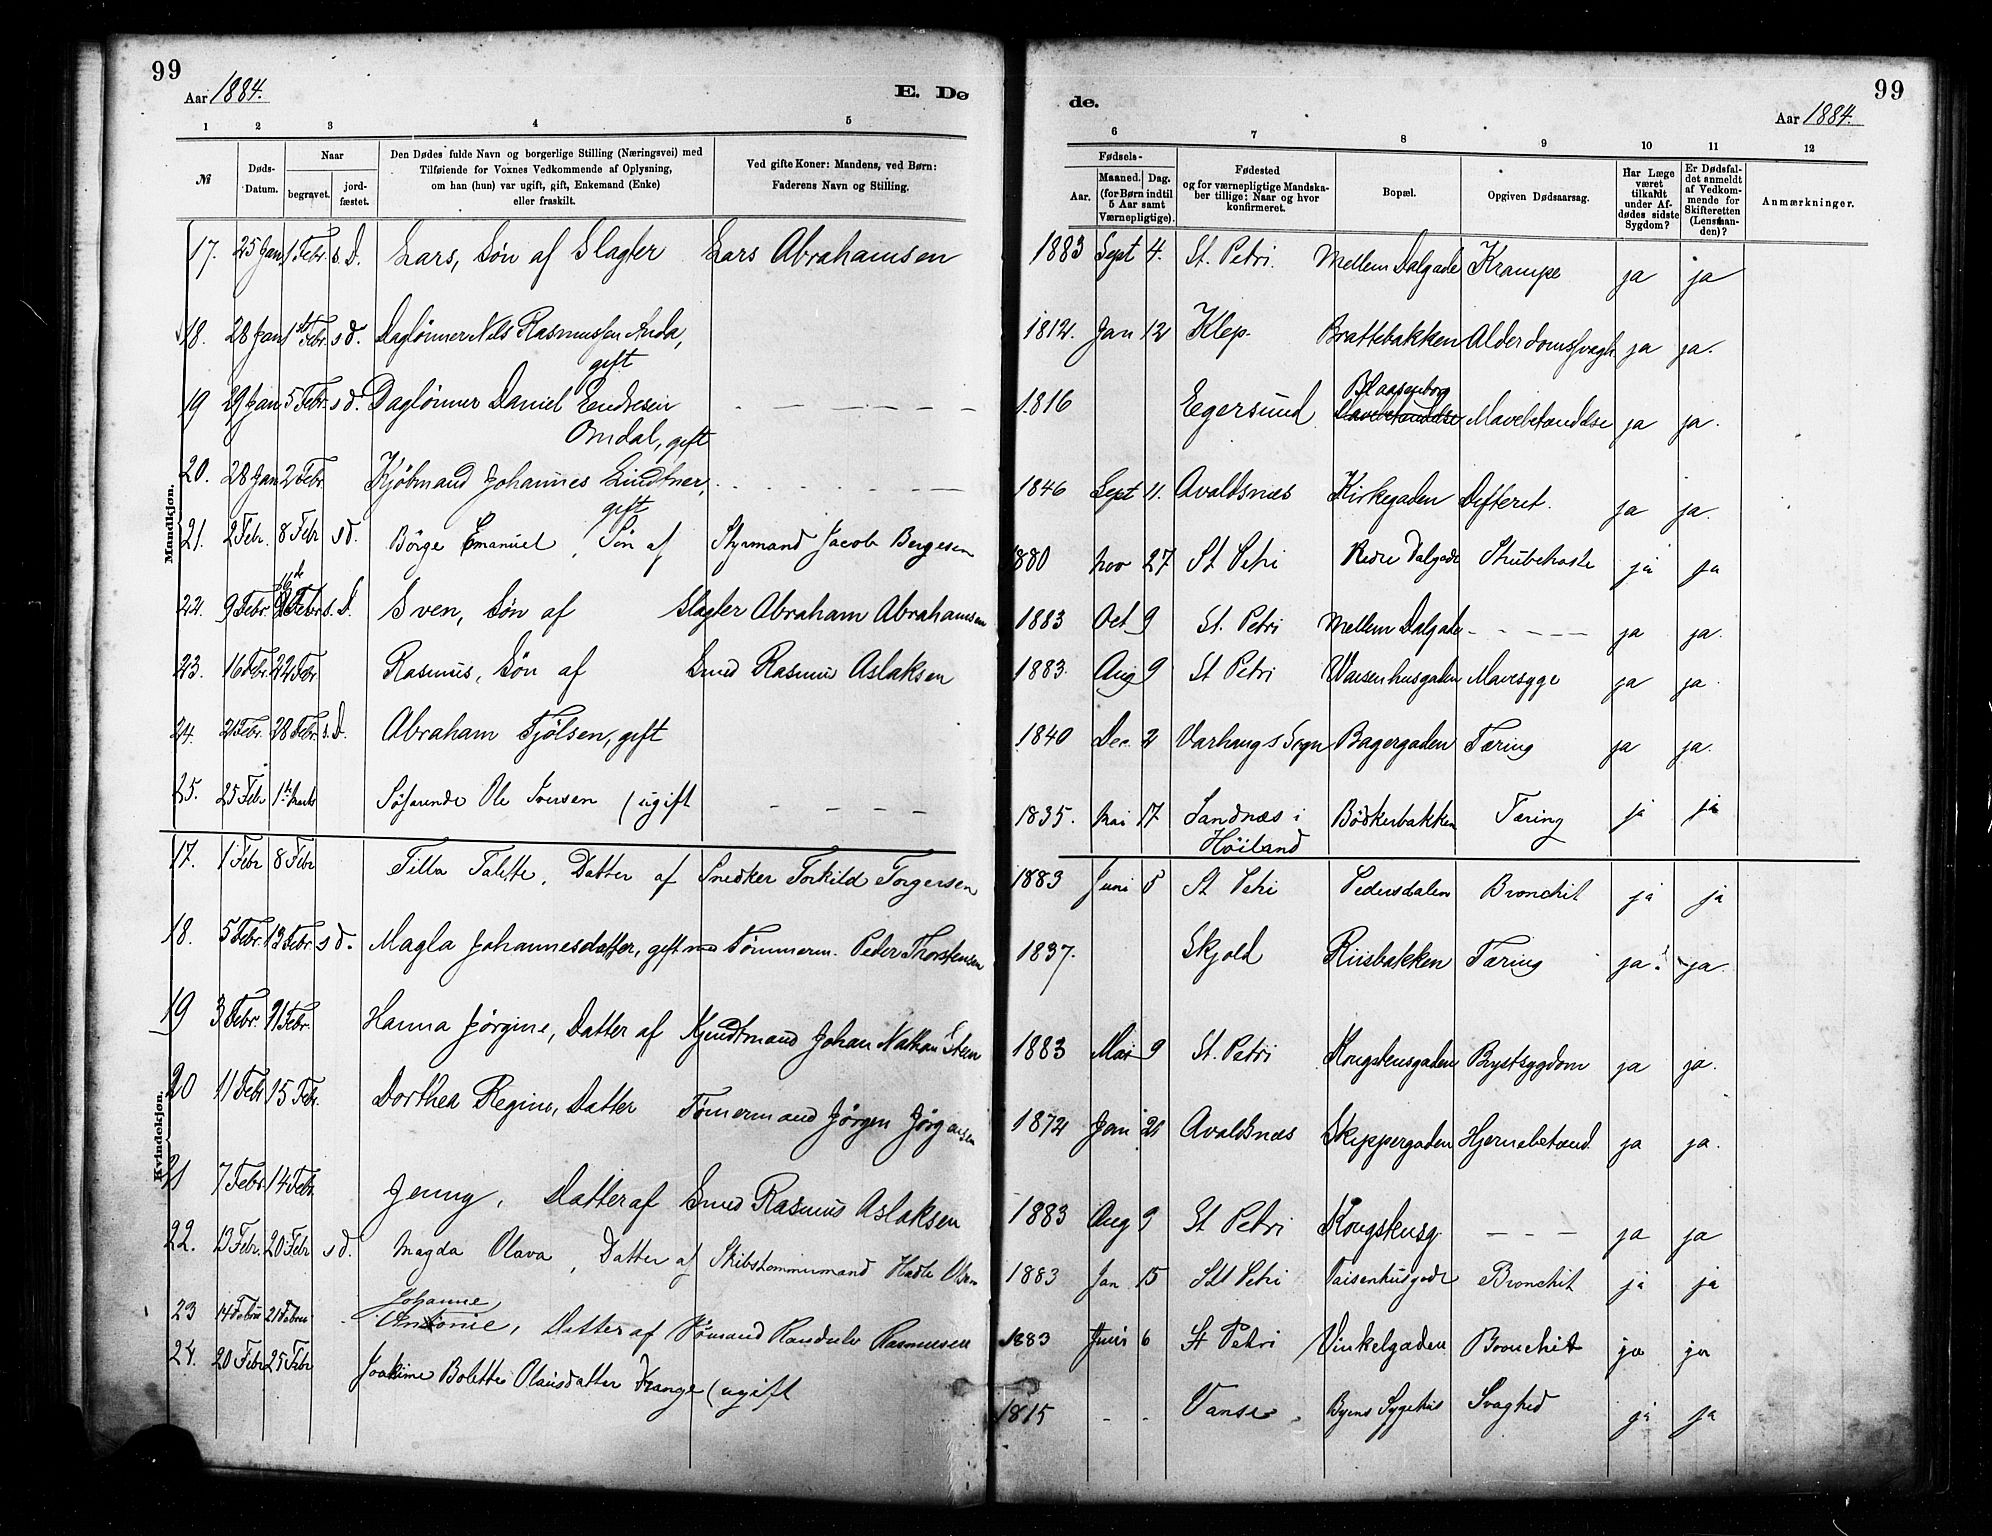 99
Aar 1884.
E. Dø
de.
99
Aar 1884.
1 2 3 4 5 6 7 8 9 10 11 12
№
Døds-Datum.
Naar
begravet.
jord-fæstet.
Den Dødes fulde Navn og borgerlige Stilling (Næringsvei) med
Tilføiende for Voxnes Vedkommende af Oplysning,
om han (hun) var ugift, gift, Enkemand (Enke)
eller fraskilt.
Ved gifte Koner: Mandens, ved Børn:
Faderens Navn og Stilling.
Fødsels-
Aar.
Maaned. Dag.
(for Børn indtil
5 Aar samt
Værnepligtige).
Fødested
og for værnepligtige Mandska-
ber tillige: Naar og hvor
konfirmeret.
Bopæl.
Opgiven Dødsaarsag.
Har Læge
været
tilkaldt
under Af-
dødes sidste
Sygdom?
Er Dødsfal-
det anmeldt
af Vedkom-
mende for
Skifteretten
(Lensman-
den)?
Anmærkninger.
Mandkjøn.
17. 25 Jan 1 Febr. s. d. Lars, Søn af Slagter Lars Abrahamsen 1883 Sept 4. St. Petri. Mellem Dalgade Krampe ja ja
18. 28 Jan 1st Febr. s d. Daglønner Nils Rasmussen Anda, gift 1812. Jan 12 Klep. Brattebakken Alderdomssvagh ja ja.
19 29 Jan 5 Febr. s d. Daglønner Daniel Endresen Omdal, gift 1816 Egersund Blaasenborg Mavebetændelse ja ja.
20. 28 Jan 2 Febr Kjøbmand Johannes Lindtner, gift 1846 Sept 11. Avaldsnæs Kirkegaden Defteret. ja ja.
21. 2 Febr. 8 Febr s d. Börge Emanuel, Søn af Styrmand Jacob Bergesen 1880 Nov 27 St Petri Nedre Dalgade Strubehoste ja ja
22. 9 Febr 16de Febr s. d. Sven, Søn af Slagter Abraham Abrahamsen 1883 Oct 9 St. Petri Mellem Dalgade - - - - ja ja.
23. 16 Febr. 22 Febr Rasmus, Søn af Smed Rasmus Aslaksen 1883. Aug 9 St Petri Waisenhusgaden Mavesyge ja ja.
24. 21 Febr. 28 Febr. s. d. Abraham Tjølsen, gift 1840 Dec. 2 Varhaugs Sogn Bagergaden Tæring ja ja.
25. 25 Febr 1te Marts Søfarende Ole Iversen (ugift 1835. Mai 17 Sandnæs i Høiland Bødkerbakken Tæring ja ja
Kvindekjøn.
17. 1 Febr 8 Febr Tilla Talette, Datter af Snedker Torkild Torgersen 1883 Juni 5 St Petri Pedersdalen Bronchit ja ja
18. 5 Febr. 13 Febr. s d. Magla Johannesdatter, gift med Tømmerm. Peder Thorstensen 1837. Skjold Riisbakken Tæring ja ja.
19 3 Febr. 21 Febr. Hanna Jørgine, Datter af Kjendtmand Johan Nathan 1883 Mai 9 St. Petri Kongstensgaden Brystsygdom ja ja.
20 11 Febr 15 Febr. Dorthea Regine, Datter Tømermand Jørgen Jørgensen 1872 Jan 21 Avaldsnæs Skippergaden Hjernebetænd. ja ja.
21 7 Febr. 14 Febr. Jenny, Datter af Smed Rasmus Aslaksen 1883 Aug 9 St Petri Kongstensg. - - - ja ja
22. 13 Febr. 20 Febr s d. Magda Olava, Datter af Skibstømmermand Hadle Olsen 1883 Jan 15 St Petri Vaisenhusgade Bronchit ja ja
23 14 Febru 21 Febru Johanne Antonie, Datter af Sømand Rasmussen 1883 Juni 6 St Petri Vinkelgaden Bronchit ja ja
24. 20 Febr 25 Febr Joakime Bolette Olausdatter (ugift 1815 - - Vanse. Byens Sygehus Svaghed ja ja